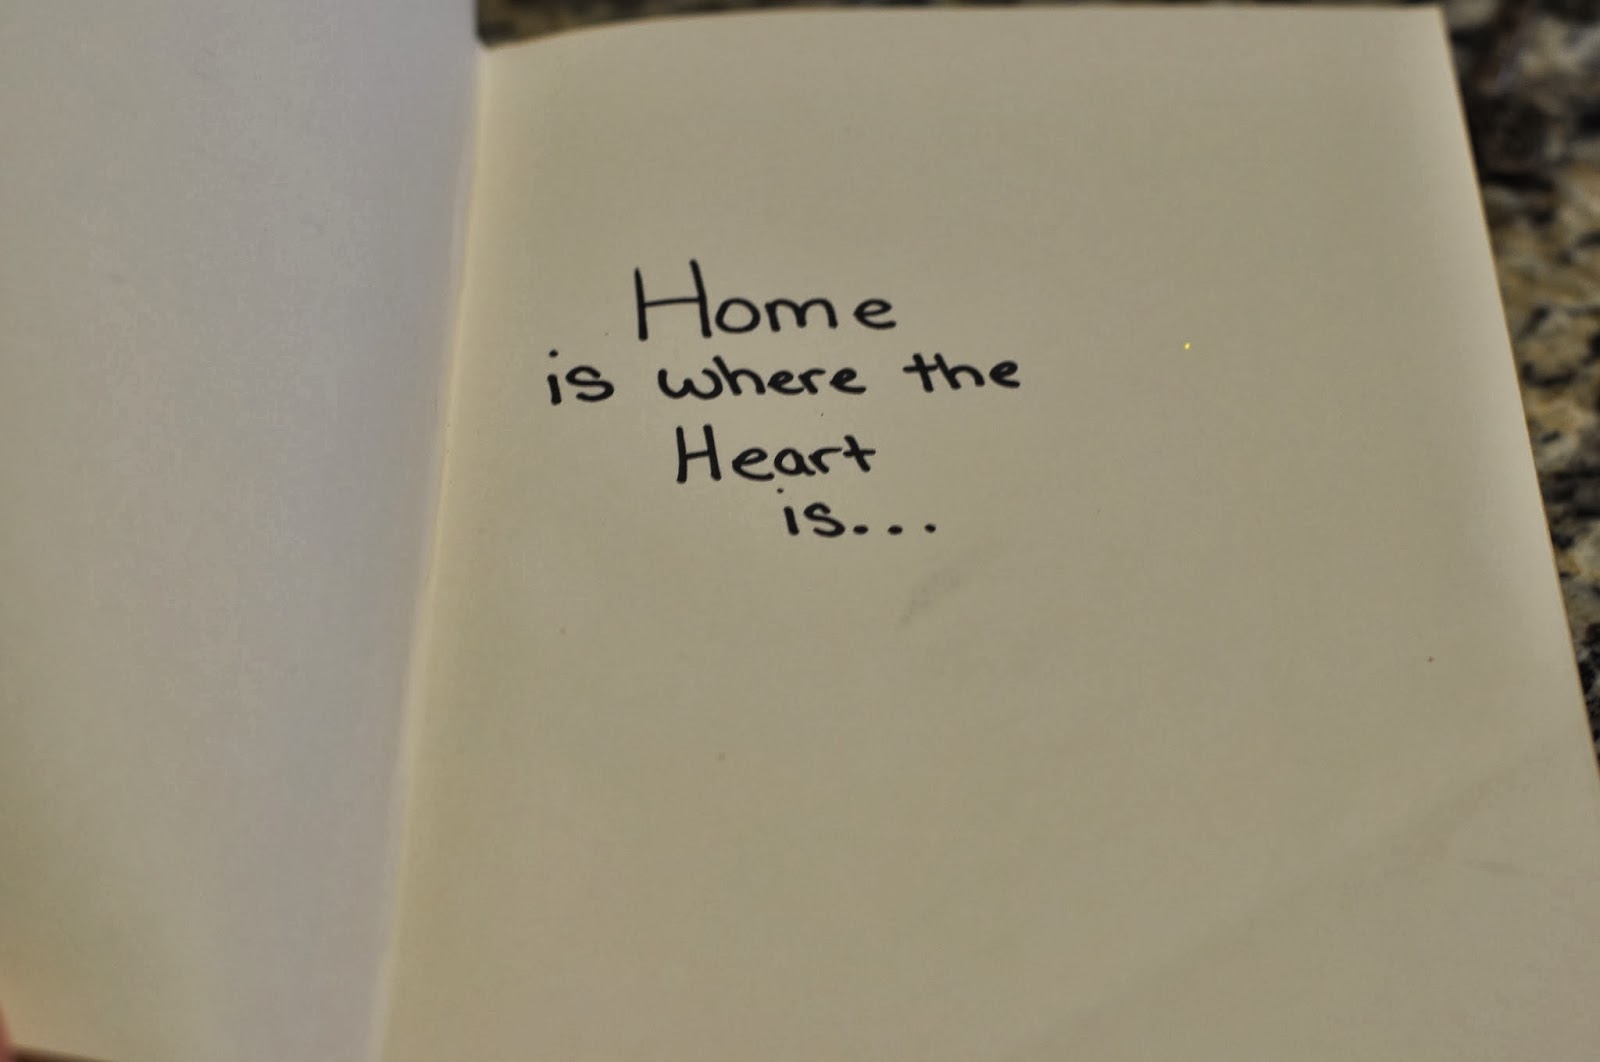 Home
is where the
Heart
is...